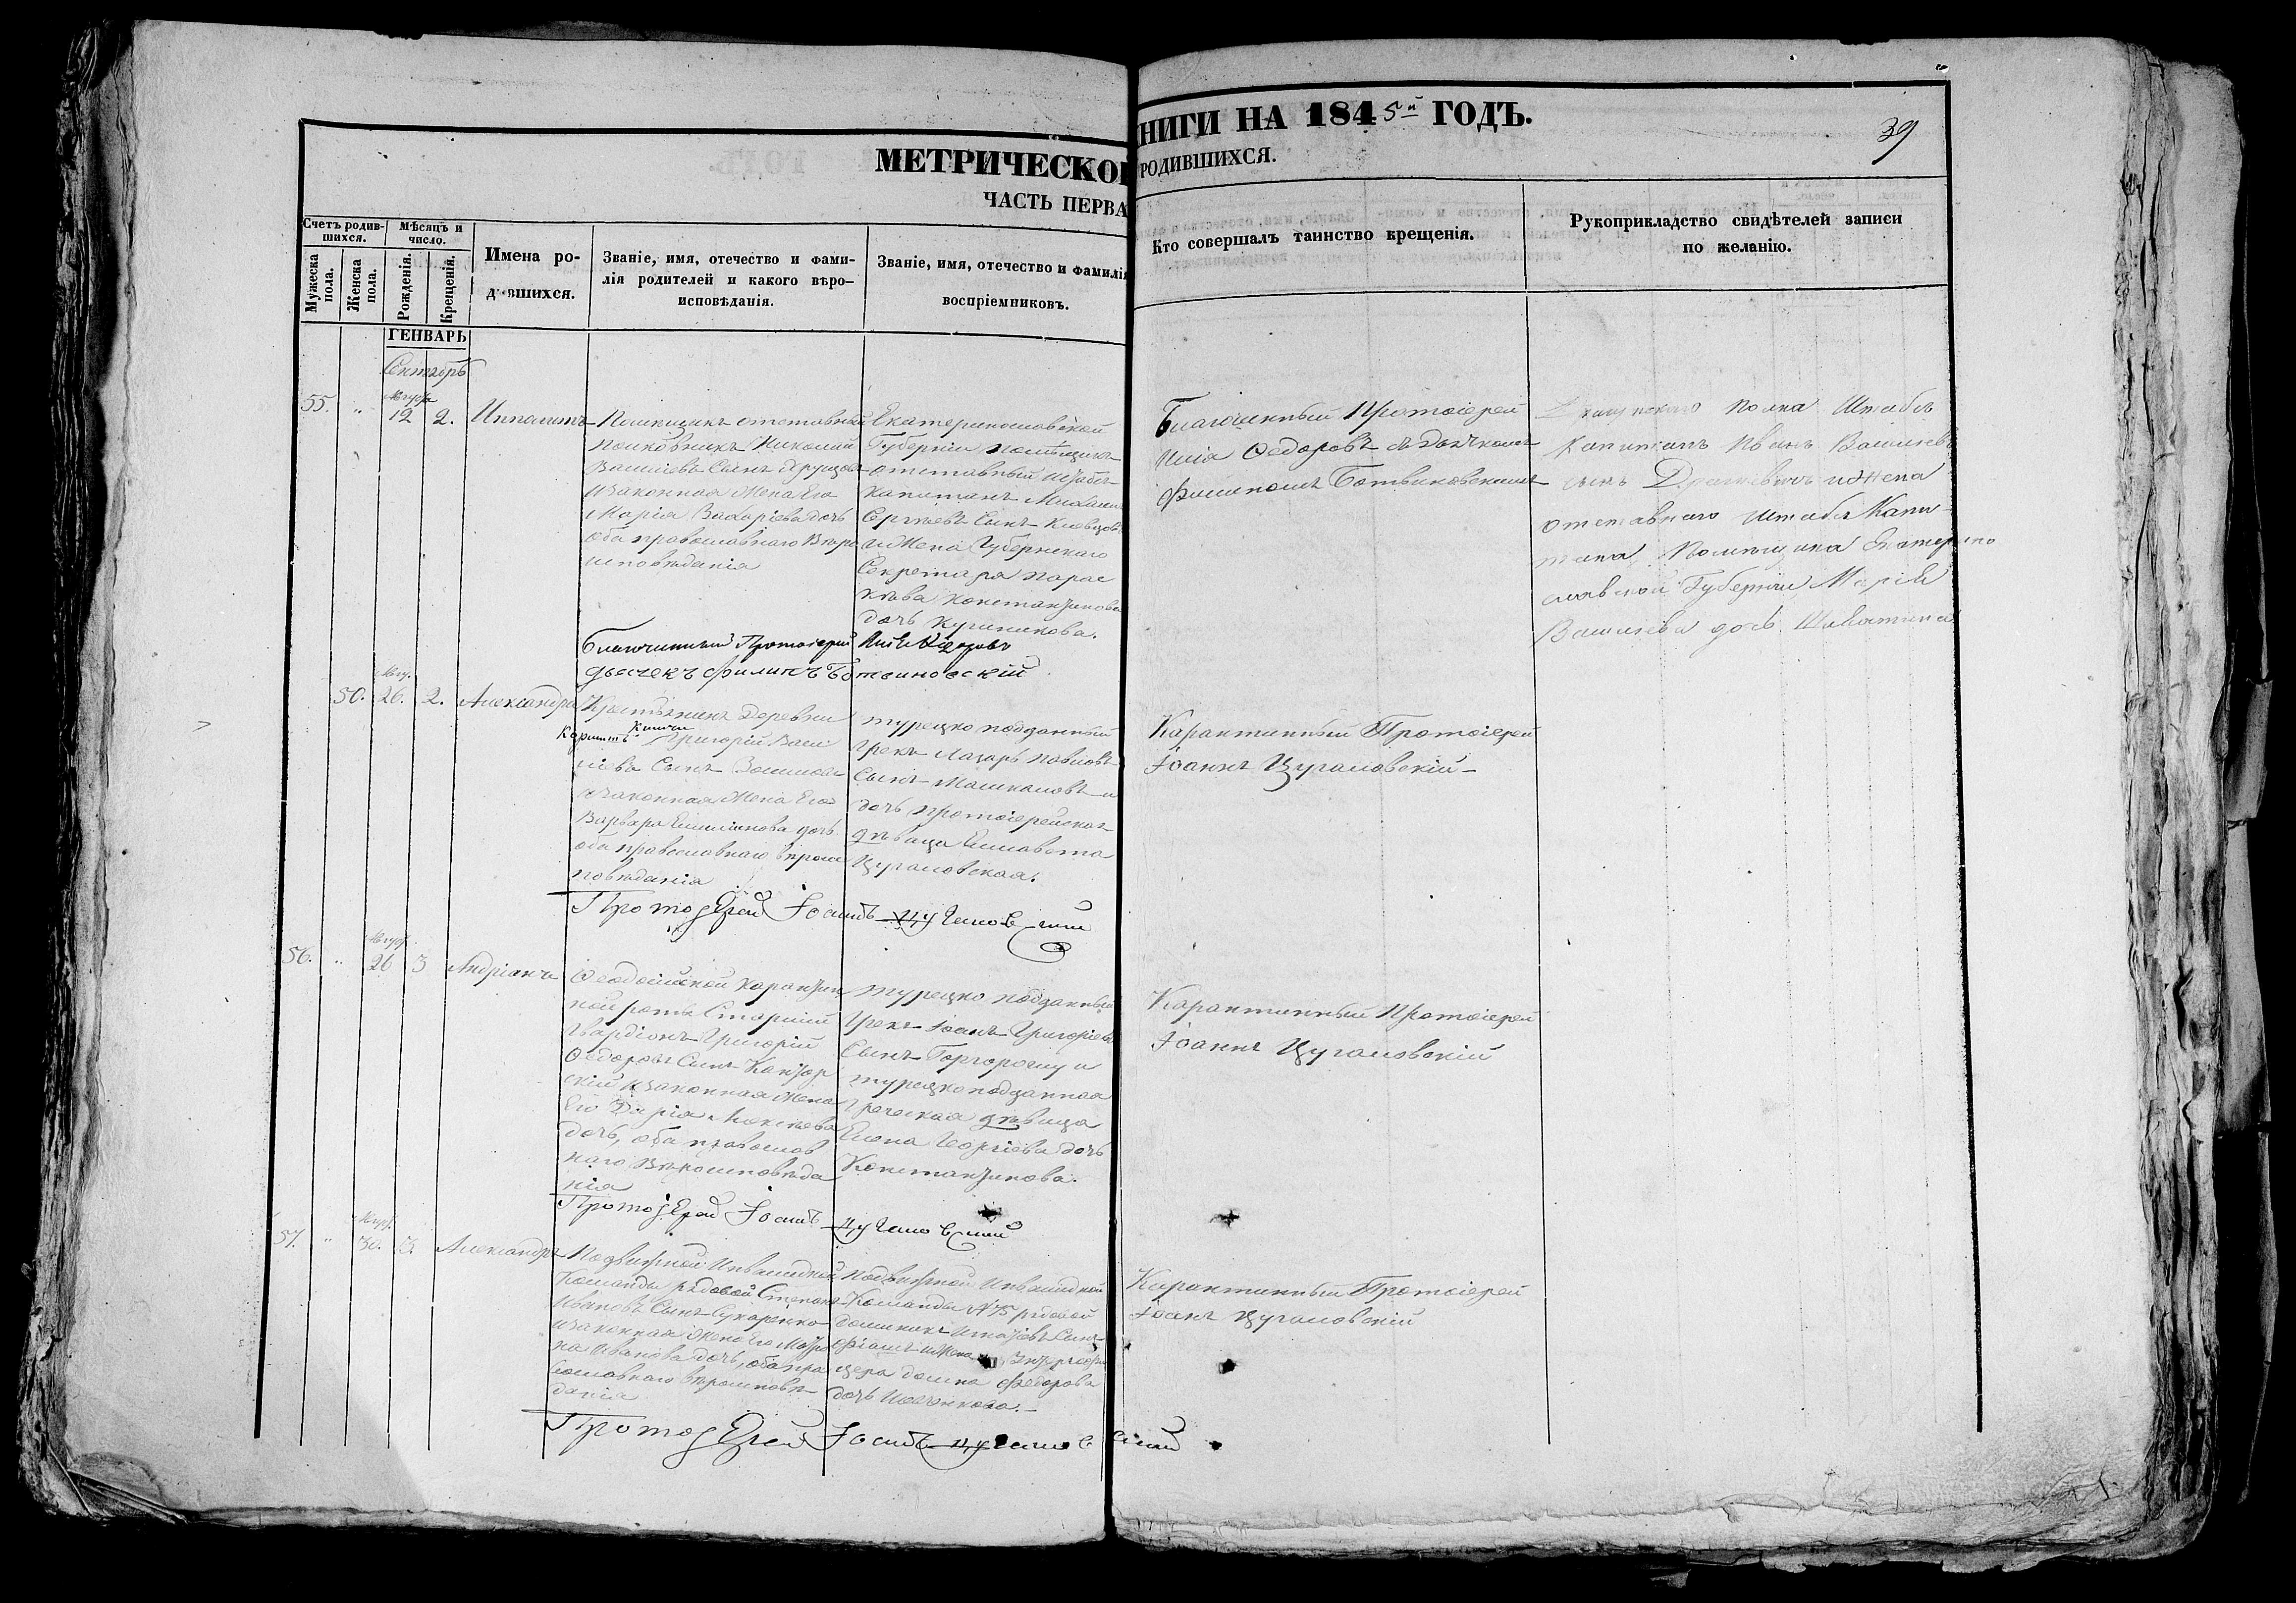 МЕТРИЧЕСКОЙ
КНИГИ НА 1845й ГОДЪ.
39
ЧАСТЬ ПЕРВА
РОДИВШИХСЯ.
Счетъ родив-
шихся.
Мужеска
пола.
Женска
пола.
Мѣсяцъ и
число.
Рожденія.
Крещенія.
Имена ро-
дившихся.
Званіе, имя, отечество и фами-
лія родителей и какого вѣро-
исповѣданія.
Званіе, имя, отечество и фамилія
воспріемниковъ.
Кто совершалъ таинство крещенія.
Рукоприкладство свидѣтелей записи
по желанію.
ГЕНВАРЬ
Сентябрь
55.
"
12
2.
Ипполитъ
Помѣщикъ отставный
полковникъ Николай
Васильевъ Сынъ
и законная Жена Его
Марія Захаріева дочь
оба православнаго Вѣро
исповѣданія
Екатеринославской
Губерніи Помѣщикъ
отставный Штабсъ
Капитанъ Михаилъ
Сергѣевъ Сынъ
и Жена Губернскаго
Секретаря Парас
кѣва Константинова
дочь
Благочинный Протоіерей
Илія Ѳедоровъ съ Дьячкомъ
Филипомъ Ботвиновскимъ
полка Штабсъ
Капитанъ Иванъ Васильевъ
сынъ и Жена
отставного Штабсъ Капи-
тана Помѣщика Екатерино
славской Губерніи Марія
Васильева дочь
Благочинный Протоіерей Илія Ѳедоровъ
дьячекъ Филипъ Ботвиновскій
50.
26.
2.
Александра
Крестьянинъ Деревни
Григорій Васи
льевъ Сынъ
и законная Жена Его
Варвара Емиліанова дочь
оба православнаго вѣроис
повѣданія
турецко подданный
Грекъ Лазарь Павловъ
Сынъ и
дочь протоіерейская
дѣвица Елисавета
Цугаловская.
Карантинный Протоіерей
Іоаннъ Цугаловскій
Протоіерей Іоаннъ Цугаловскій
56.
"
26
3
Андріанъ
Ѳеодосійской карантин
ной роты Старшій
Гвардіонъ Григорій
Ѳедоровъ Сынъ
и законная Жена
Его Дарія Алексѣева
дочь, оба православ
наго Вѣроисповѣда
нія
турецко подданный
Грекъ Іоанъ Григорьевъ
Сынъ и
турецкоподданная
греческая дѣвица
Елена Георгіева дочь
Константинова.
Карантинный Протоіерей
Іоаннъ Цугаловскій
Протоіерей Іоаннъ Цугаловскій
57.
"
30.
3.
Александръ
Подвижной Инвалидной
Команды рядовой Степанъ
Ивановъ Сынъ
и законная Жена Его Матро
на Иванова дочь, оба пра
вославнаго вѣроисповѣ-
данія
Подвижной Инвалидной
Команды № 75 рядовой
Сынъ
и Жена
цера Домна Федорова
дочь
Карантинный Протоіерей
Іоанъ Цугаловскій
Протоіерей Іоаннъ Цугаловскій